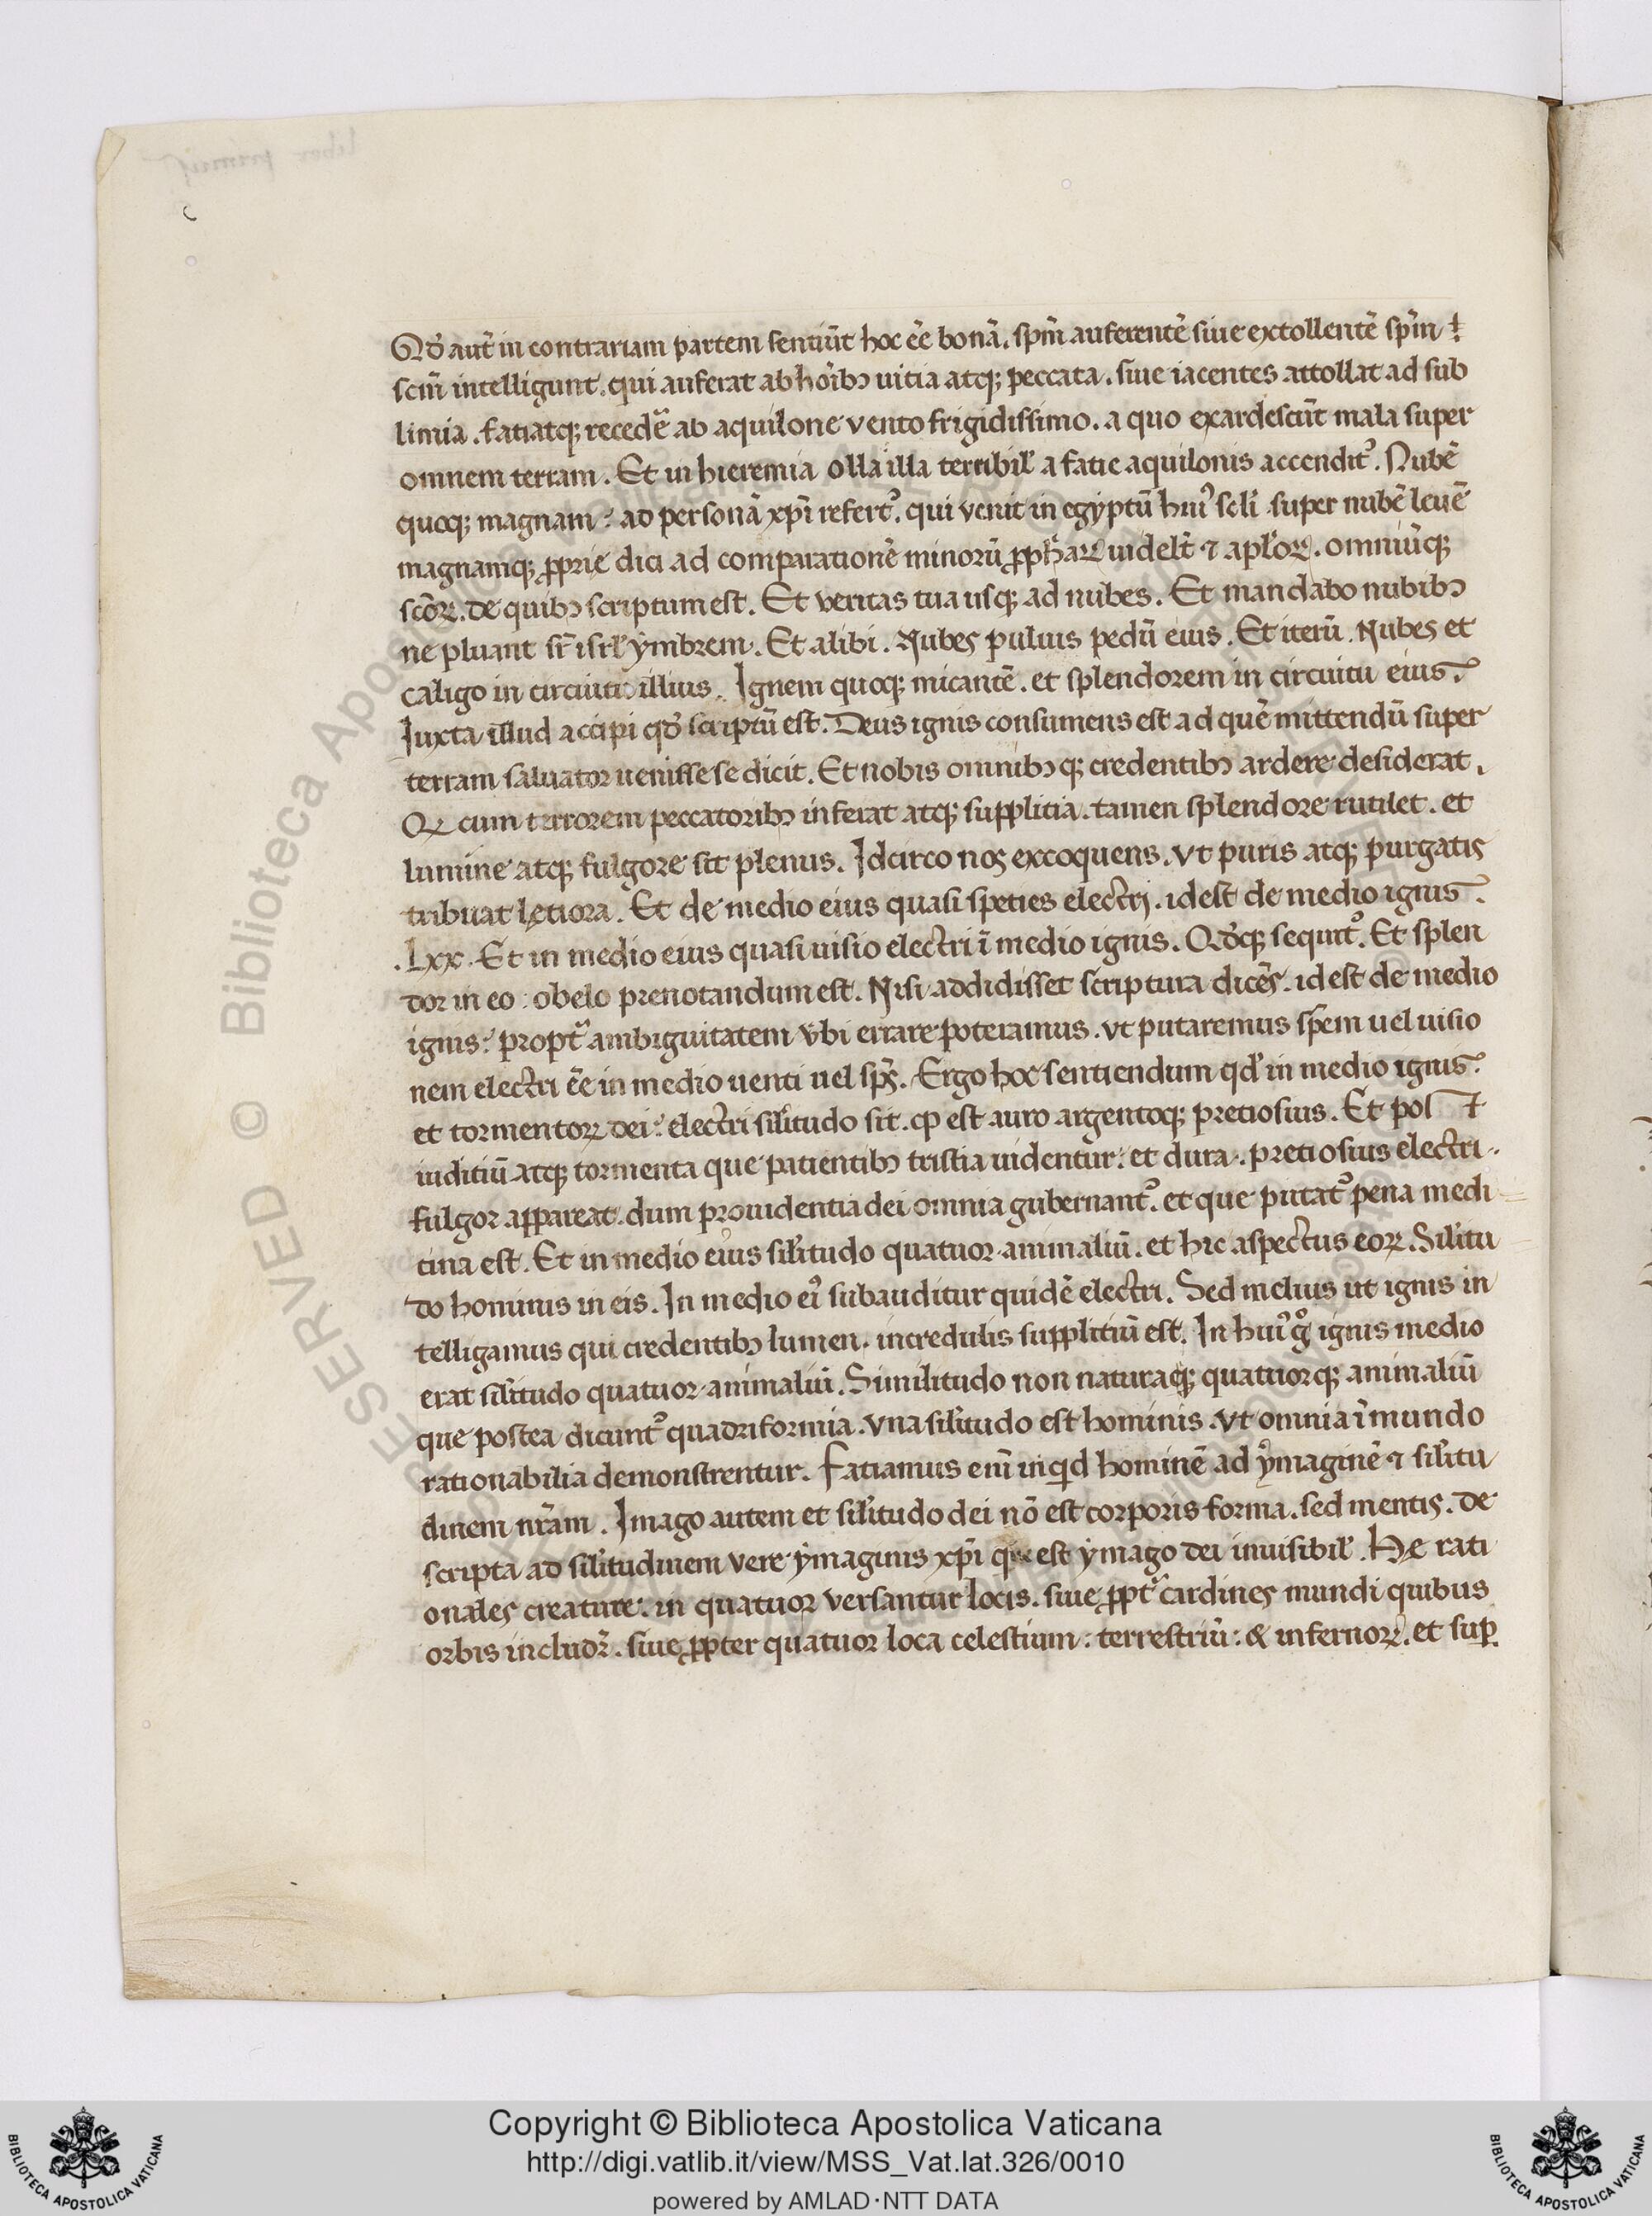 Qđ aut̄ in contrariam partem sentiūt hoc ēē bonā. spm̄ auferentē siue extollentē spm̄ ƚ
scm̄ intelligunt. qui auferat ab hoībꝫ uitia atqꝫ peccata. siue iacentes attollat ad sub
limia. fatiatqꝫ recedē ab aquilone vento frigidissimo. a quo exardescūt mala super
omnem terram. Et in hieremia olla illa terribil̕ a fatie aquilonis accendit᷒. Nubē
quoqꝫ magnam: ad personā xp̄i refert᷒. qui venit in egyptū hui᷒ scli super nubē leuē
magnamqꝫ ꝓprie dici ad comparationē minorū ꝓpħaꝝ uidelt̄ ⁊ apl̕oꝝ. omniūqꝫ
scōꝝ. de quibꝫ scriptum est. Et veritas tua usqꝫ ad nubes. Et mandabo nubibꝫ
ne pluant sr̄ isrl̕ ẏmbrem. Et alibi. Nubes puluis pedū eius. Et iterū. Nubes et
caligo in circuitu illius. Ignem quoqꝫ micantē. et splendorem in circuitu eius.
Iuxta illud accipi qđ scriptū est. Deus ignis consumens est ad quē mittendū super
terram saluator uenisse se dicit. Et nobis omnibꝫqꝫ credentibꝫ ardere desiderat.
Qꝛ cum terrorem peccatoribꝫ inferat atqꝫ supplitia. tamen splendore rutilet. et
lumine atqꝫ fulgore sit plenus. Idcirco nos excoquens. vt puris atqꝫ purgatis
tribuat lętiora. Et de medio eius quasi speties electrj. idest de medio ignis.
.Lxx. Et in medio eius quasi uisio electri ī medio ignis. Qđqꝫ sequit᷒. Et splen
dor in eo: obelo prenotandum est. Nisi addidisset scriptura dicēs. idest de medio
ignis: propt̄ ambiguitatem vbi errare poteramus. vt putaremus spēm uel uisio
nem electri ēē in medio uenti uel sps̄. Ergo hoc sentiendum qđ in medio ignis.
et tormentoꝝ dei: electri sil̕itudo sit. qꝫ est auro argentoqꝫ pretiosius. Et pos ƚ
iuditiū atqꝫ tormenta que patientibꝫ tristia uidentur: et dura. pretiosius electri.
fulgor appareat. dum prouidentia dei omnia gubernant᷒. et que putat᷒ pena medi
cina est. Et in medio eius sil̕itudo quatuor animaliū. et hic aspectus eoꝝ. Sil̕itu
do hominis in eis. In medio ei᷒ subauditur quidē electri. Sed melius ut ignis in
telligamus qui credentibꝫ lumen. incredulis supplitiū est. In hui᷒ gͦ ignis medio
erat sil̕itudo quatuor animaliū. Similitudo non naturaqꝫ quatuorqꝫ animaliū
que postea dicunt᷒ quadriformia. vna sil̕itudo est hominis. vt omnia ī mundo
rationabilia demonstrentur. Fatiamus eni̅ inqͥd hominē ad ẏmaginē ⁊ sil̕itu
dinem nr̄am. Imago autem et sil̕itudo dei nō est corporis forma. sed mentis. de
scripta ad sil̕itudinem vere ẏmaginis xp̄i que est ẏmago dei inuisibil̕. Hę rati
onales creature. in quatuor versantur locis. siue ꝓpt̄ cardines mundi quibus
orbis includr̄. siue ꝓpter quatuor loca celestium: terrestriū: & infernoꝝ. et suꝑ
Copyright © Biblioteca Apostolica Vaticana
http://digi.vatlib.it/view/MSS_Vat.lat.326/0010
powered by AMLAD·NTT DATA
BIBLIOTECA APOSTOLICA VATICANA
BIBLIOTECA APOSTOLICA VATICANA